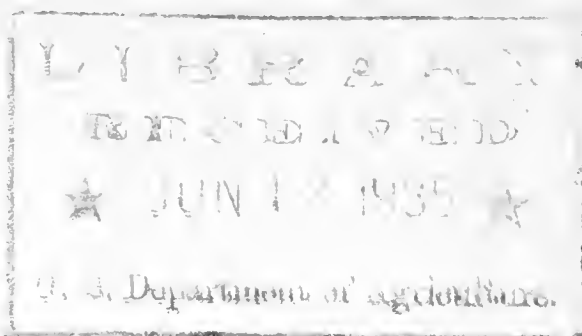 LIBRARY
RECEIVED
★ JUN 1 1935 ★
U. S. Department of Agriculture.